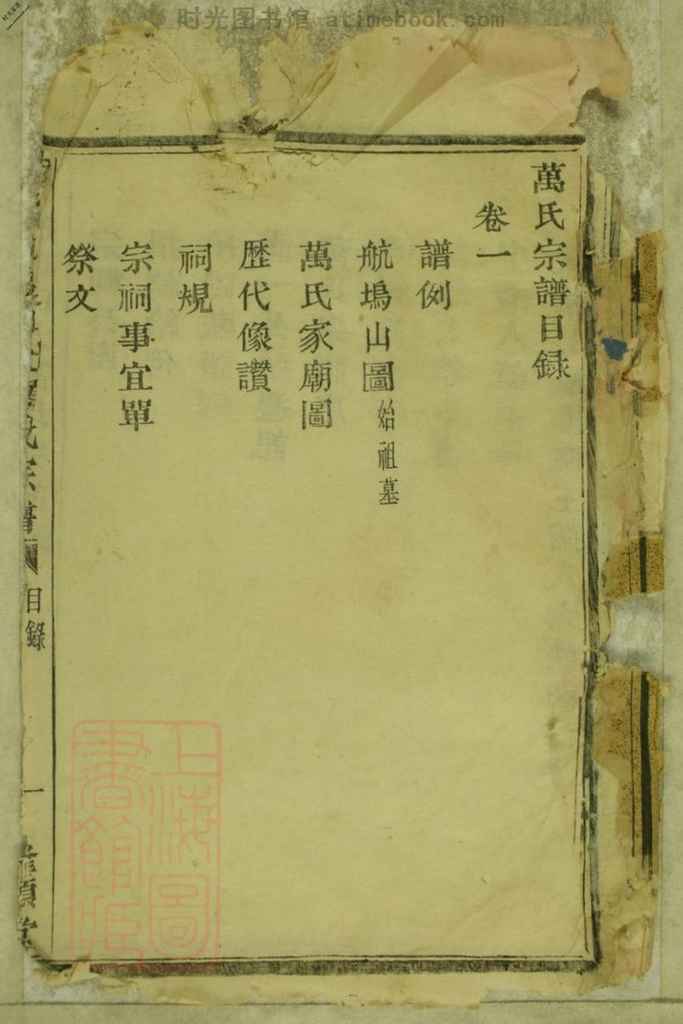 时光图书馆 atimebook.com
萬氏宗譜目録
卷一
譜例
航塢山圖 始祖墓
萬氏家廟圖
歷代像讚
祠規
宗祠事宜單
祭文
氏宗譜
目錄
一
上海圖
書館藏